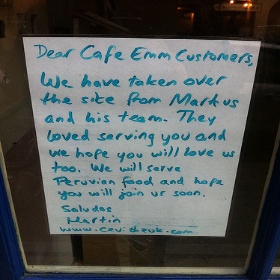 Dear Cafe Emm Customers,
We have taken over
the site from Markus
and his team. They
loved serving you and
we hope you will love us
too. We will serve
Peruvian food and hope
you will join us soon.
Saludos
Martin
www.cevicheuk.com